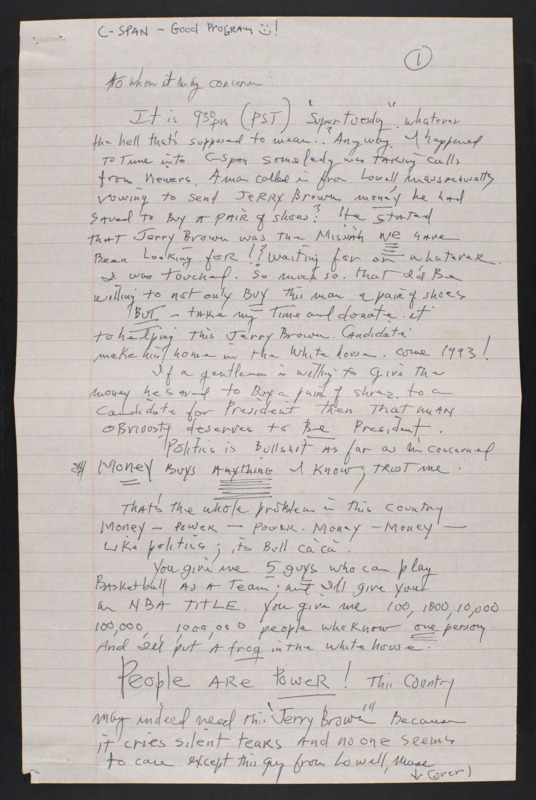 C-SPAN - Good Program !
1
To whom it may concern
It is 930pm (PST) "Super tuesday" whatever
the hell that's supposed to mean..? Anyway I happened
to tune into C-span somelady was taking calls
from viewers. A man called in from Lowell Massachusetts
vowing to send Jerry Brown money he had
saved to Buy a pair of shoes? He stated
that Jerry Brown was the Missiah we have
Been Looking for !? waiting for or whatever.
I was touched. So much so. that I'd Be
willing to not only Buy this man a pair of shoes
But - take my Time and donate it
to helping this Jerry Brown. Candidate
make his home in the White house. come 1993!
If a gentleman is willing to give the
money he saved to Buy a pair of shoes to a
Candidate for President then That man
obviously deserves to Be President.
Politics is Bullshit as far as I'm concerned
Money Buys Anything I know, trust me.
That's the whole problem in this country
Money - Power - Power. Money - Money -
Like politics; its Bull ca ca.
You give me 5 guys who can play
Basketball as a Team; and I'll give you
an NBA TITLE. You give me 100, 1000, 10,000
100,000, 1000,000 people who know one person
And I'll put a frog in the White house.
People are Power! This Country
may indeed need this "Jerry Brown" Because
it cries silent tears And no one seems
to care except this guy from Lowell, Mass
↓ (over)